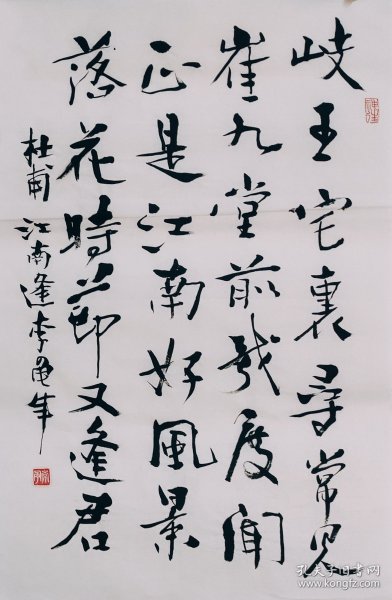 岐王宅裏尋常見
崔九堂前我度聞
正是江南好風景
落花時節又逢君
杜甫 江南逢李龜年
孔夫子旧书网
www.kongfz.com